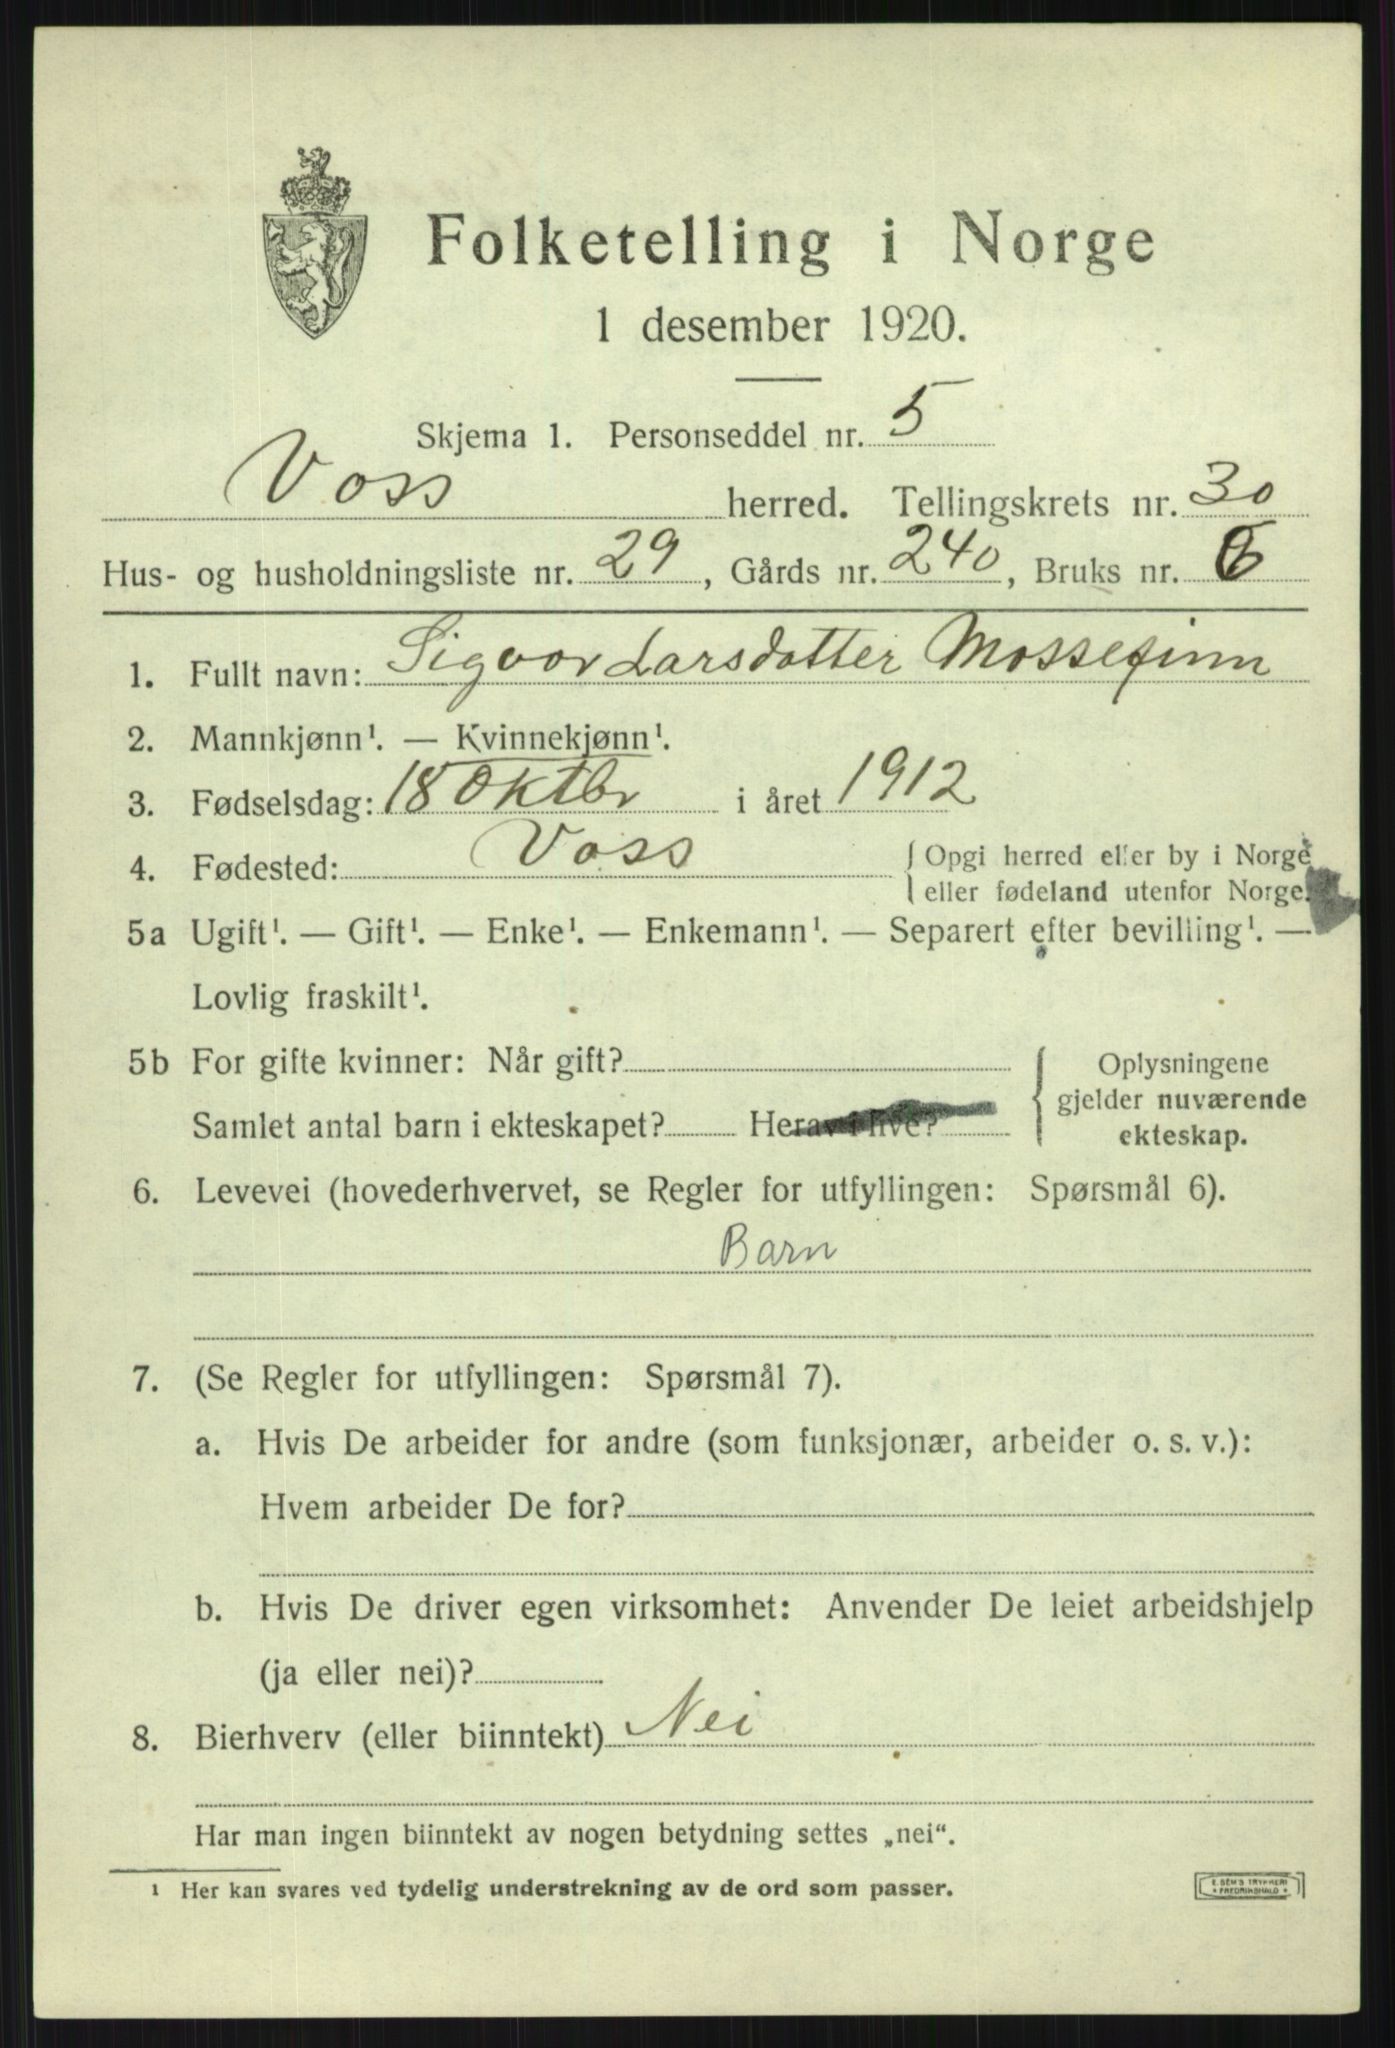 Folketelling i Norge
1 desember 1920.
Skjema 1. Personseddel nr. 5
Voss herred. Tellingskrets nr. 30
Hus- og husholdningsliste nr. 29, Gårds nr. 240, Bruks nr. 6
1. Fullt navn: Sigvor Larsdotter Mossefinn
2. Mannkjønn¹. — Kvinnekjønn¹.
3. Fødselsdag: 18 Oktbr i året 1912
4. Fødested: Voss { Opgi herred eller by i Norge
eller fødeland utenfor Norge.
5a Ugift¹. — Gift¹. — Enke¹. — Enkemann¹. — Separert efter bevilling¹. —
Lovlig fraskilt¹.
5b For gifte kvinner: Når gift?
Samlet antal barn i ekteskapet? Herav i live?
{ Oplysningene
gjelder nuværende
ekteskap.
6. Levevei (hovederhvervet, se Regler for utfyllingen: Spørsmål 6).
Barn
7. (Se Regler for utfyllingen: Spørsmål 7).
a. Hvis De arbeider for andre (som funksjonær, arbeider o. s. v.):
Hvem arbeider De for?
b. Hvis De driver egen virksomhet: Anvender De leiet arbeidshjelp
(ja eller nei)?
8. Bierhverv (eller biinntekt) Nei
Har man ingen biinntekt av nogen betydning settes „nei“.
¹ Her kan svares ved tydelig understrekning av de ord som passer.
E. SEM'S TRYKKERI
FREDRIKSHALD